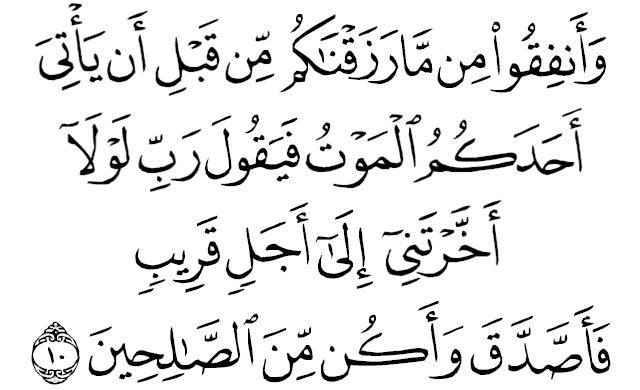 وَأَنفِقُوا۟ مِن مَّا رَزَقْنَٰكُم مِّن قَبْلِ أَن يَأْتِىَ
أَحَدَكُمُ ٱلْمَوْتُ فَيَقُولَ رَبِّ لَوْلَآ
أَخَّرْتَنِىٓ إِلَىٰٓ أَجَلٍ قَرِيبٍ
فَأَصَّدَّقَ وَأَكُن مِّنَ ٱلصَّٰلِحِينَ ١٠